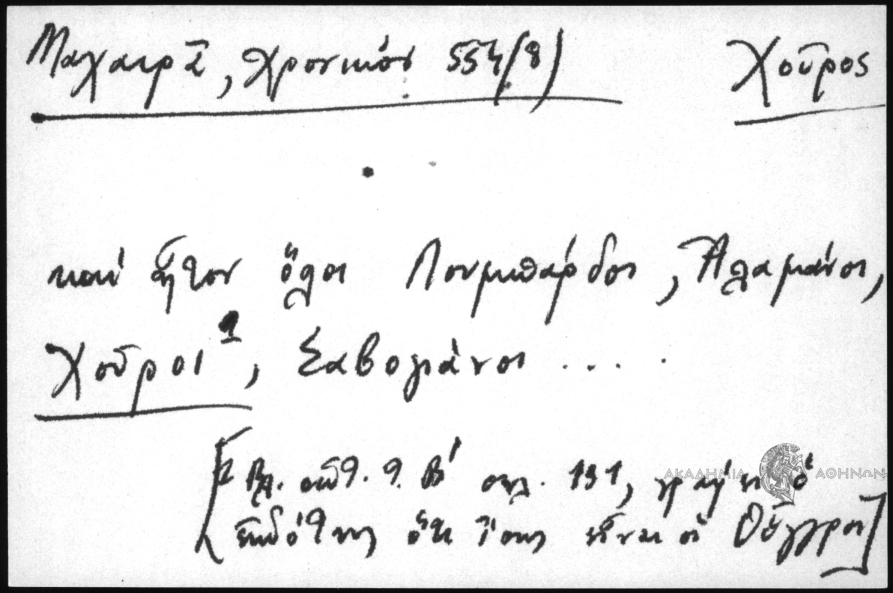 Μαχαιρᾶ, Χρονικόν 554/8) Χοῦρος
καὶ ἦτον ὅλοι Λουμπάρδοι, Ἀλαμάνοι,
Χοῦροι¹, Σαβογιάνοι ....
[¹ Βλ. Β΄ σελ. 191, γράφει ὁ
ἐκδότης ὅτι ἴσως εἶναι οἱ Οὕγγροι]
ΑΚΑΔΗΜΙΑ ΑΘΗΝΩΝ